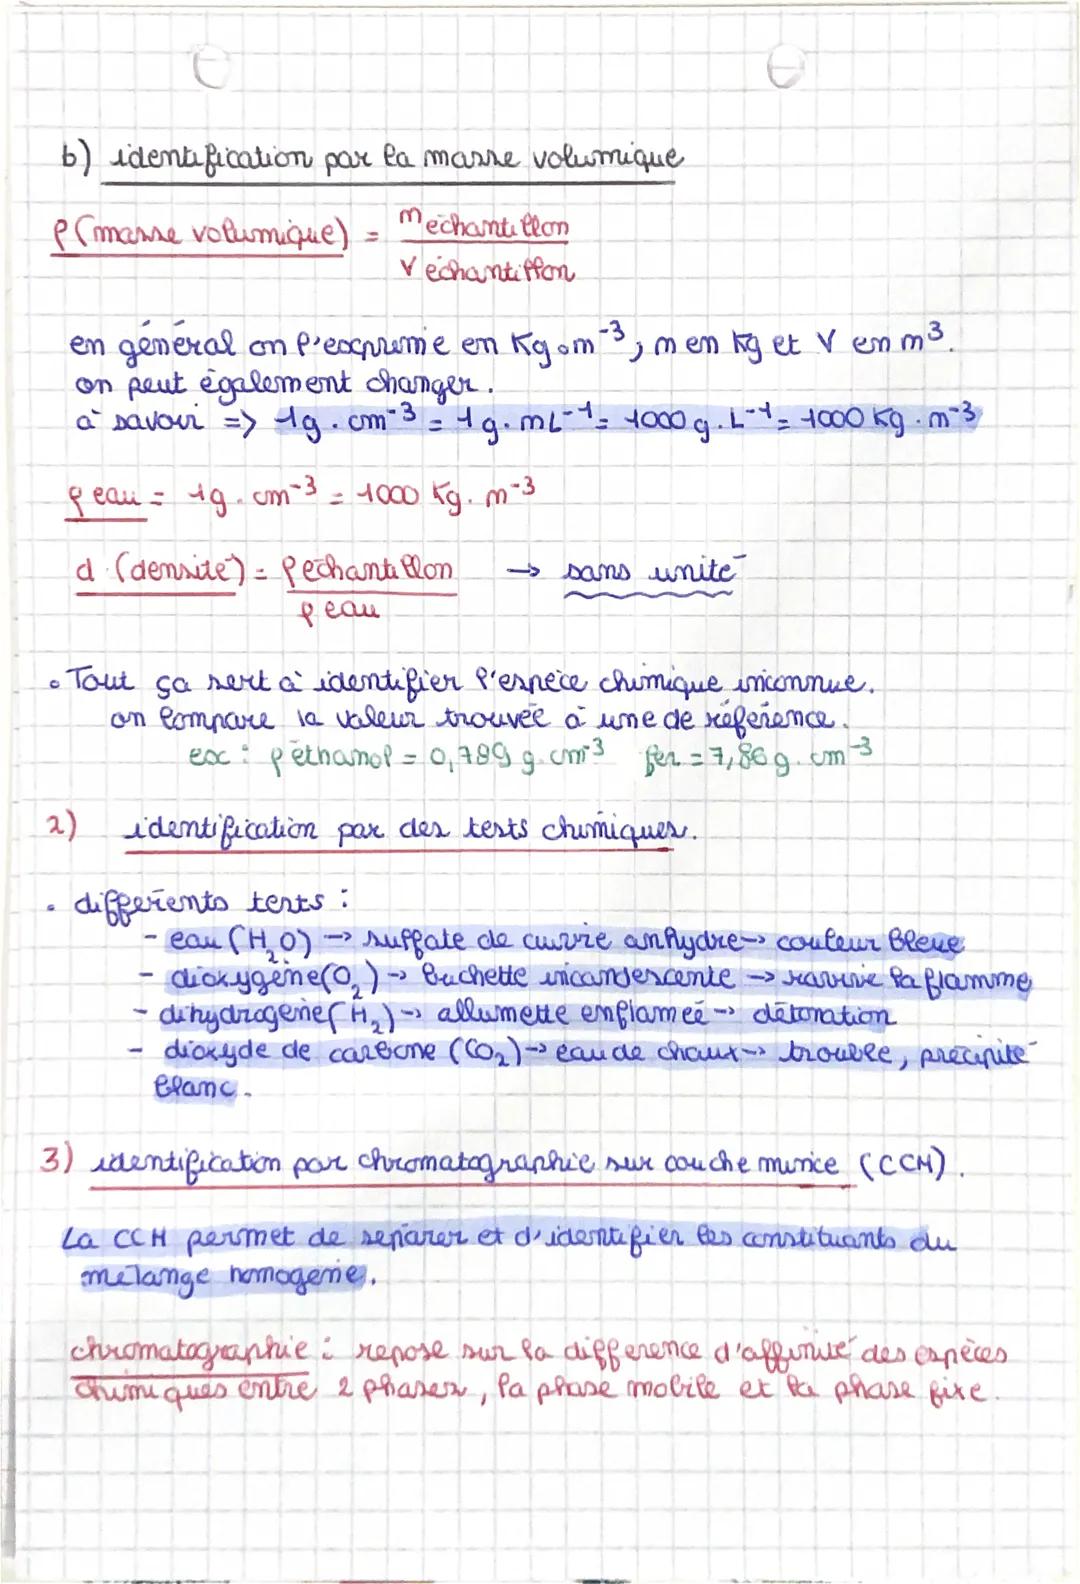 b) identification par la masse volumique
ρ (masse volumique) = m échantillon / V échantillon
en général on l'exprime en Kg.m⁻³, m en Kg et V en m³.
on peut également changer.
à savoir => 1g.cm⁻³ = 1g.mL⁻¹ = 1000g.L⁻¹ = 1000 Kg.m⁻³
ρ eau = 1g.cm⁻³ = 1000 Kg.m⁻³
d (densité) = ρ échantillon / ρ eau → sans unité
• Tout ça sert à identifier l'espèce chimique inconnue.
on compare la valeur trouvée à une de référence.
ex : ρ éthanol = 0,789 g.cm⁻³ fer = 7,86g.cm⁻³
2) identification par des tests chimiques.
• différents tests :
- eau (H₂O) → sulfate de cuivre anhydre → couleur bleue
- dioxygène (O₂) → buchette incandescente → ravive la flamme
- dihydrogène (H₂) → allumette enflamée → détonation
- dioxyde de carbone (CO₂) → eau de chaux → trouble, précipité
blanc.
3) identification par chromatographie sur couche mince (CCM).
La CCM permet de séparer et d'identifier les constituants du
mélange homogène.
chromatographie : repose sur la différence d'affinité des espèces
chimiques entre 2 phases, la phase mobile et la phase fixe.